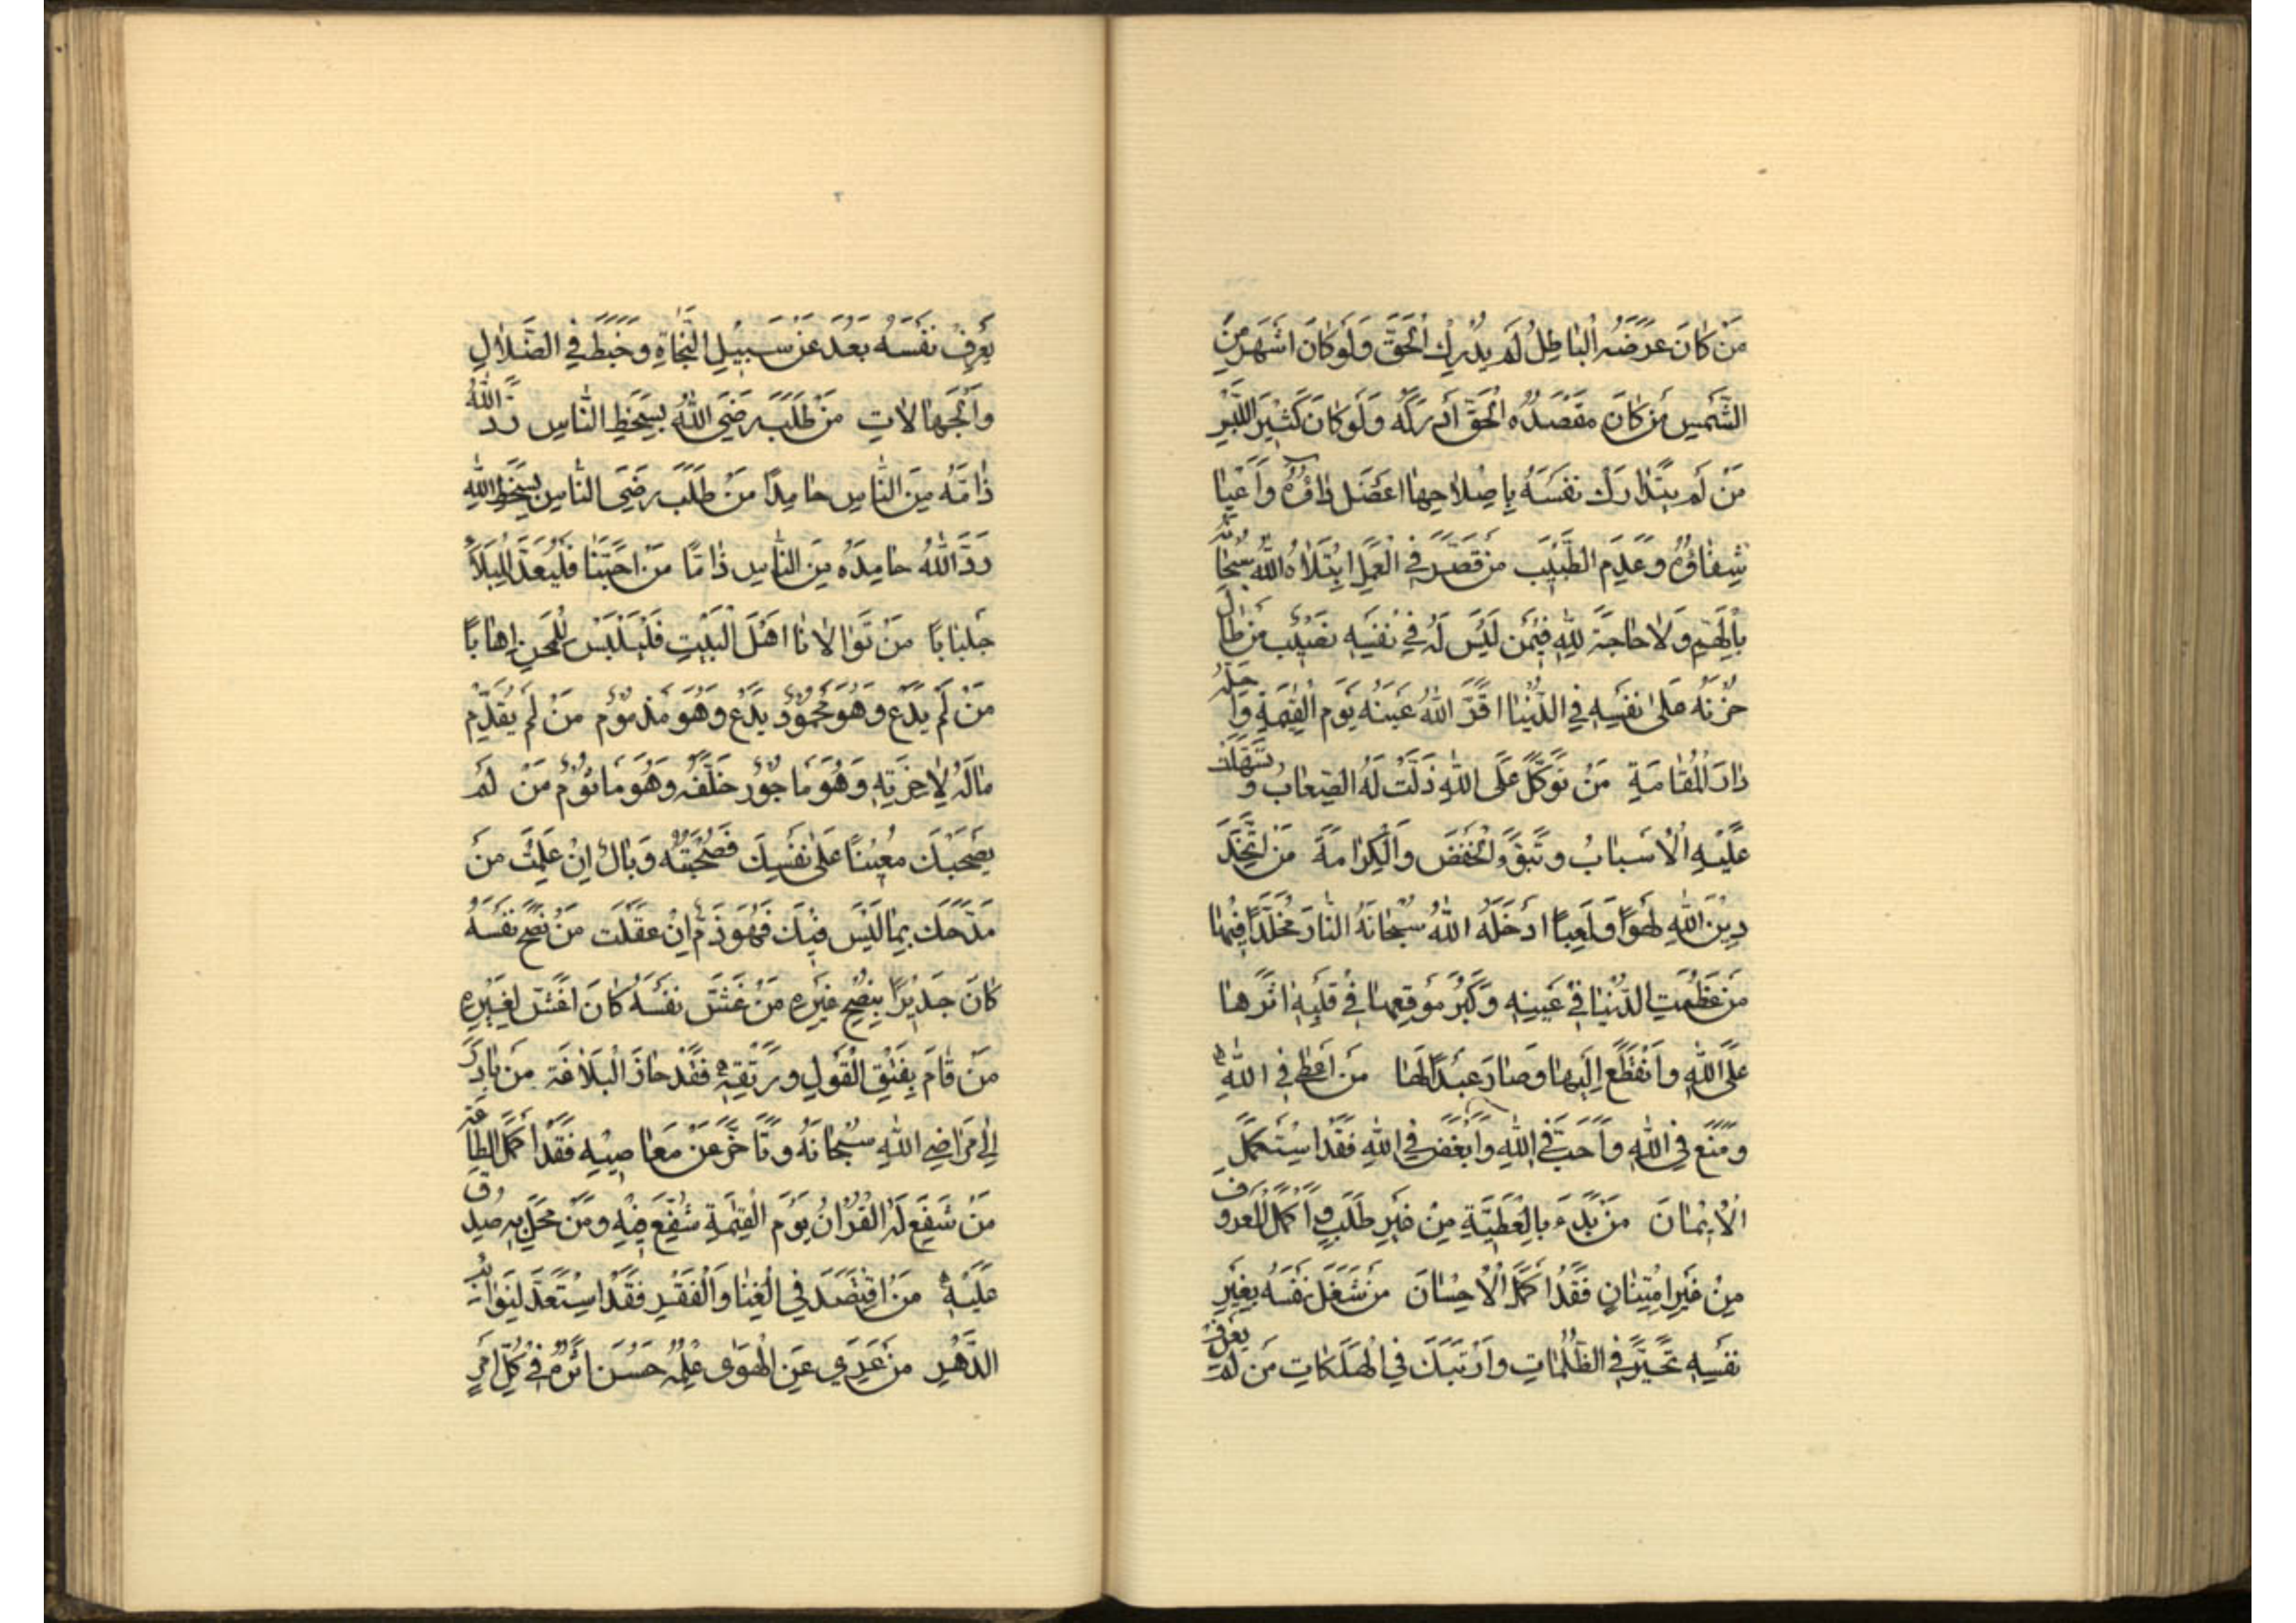 مَنْ كانَ غَرَضُهُ الْباطِلُ لَمْ يُدْرِكِ الْحَقَّ وَلَوْ كانَ اشْهَرَ مِنَ
الشَّمْسِ مَنْ كانَ مَقْصَدُهُ الْحَقَّ ادْرَكَهُ وَلَوْ كانَ كَثيرَ اللَّبْسِ
مَنْ لَمْ يَتَدارَكْ نَفْسَهُ بِاِصْلاحِها اعْضَلَ داؤُهُ وَاَعْيا
شِفاؤُهُ وَعَدِمَ الطَّبيبَ مَنْ قَصَّرَ فِي الْعَمَلِ ابْتَلاهُ اللهُ سُبْحانَهُ
بِالْهَمِّ وَلا حاجَةَ لِلّهِ فيمَنْ لَيْسَ لَهُ في نَفْسِهِ نَصيبٌ مَنْ طالَ
حُزْنُهُ عَلى نَفْسِهِ فِي الدُّنْيا اقَرَّ اللهُ عَيْنَهُ يَوْمَ الْقِيمَةِ وَاَحَلَّهُ
دارَ الْمُقامَةِ مَنْ تَوَكَّلَ عَلَى اللهِ ذَلَّتْ لَهُ الصِّعابُ وَتَسَهَّلَتْ
عَلَيْهِ الْاَسْبابُ وَتَبَوَّءَ الْخَفْضَ وَالْكِرامَةَ مَنِ اتَّخَذَ
دينَ اللهِ لَهْوًا وَلَعِبًا ادْخَلَهُ اللهُ سُبْحانَهُ النّارَ مُخَلَّدًا فيها
مَنْ عَظُمَتِ الدُّنْيا في عَيْنِهِ وَكَبُرَ مَوْقِعُها في قَلْبِهِ اثَرَها
عَلَى اللهِ وَانْقَطَعَ اِلَيْها وَصارَ عَبْدًا لَها مَنْ اَعْطى فِي اللهِ
وَمَنَعَ فِي اللهِ وَاَحَبَّ فِي اللهِ وَاَبْغَضَ فِي اللهِ فَقَدِ اسْتَكْمَلَ
الْاِيْمانَ مَنْ بَدَءَ بِالْعَطِيَّةِ مِنْ غَيْرِ طَلَبٍ وَاَكْمَلَ الْمَعْرُوفَ
مِنْ غَيْرِ امْتِنانٍ فَقَدْ اَكْمَلَ الْاِحْسانَ مَنْ شَغَلَ نَفْسَهُ بِغَيْرِ
نَفْسِهِ تَحَيَّرَ فِي الظُّلُماتِ وَارْتَبَكَ فِي الْهَلَكاتِ مَنْ لَمْ يَعْرِفْ
يَعْرِفْ نَفْسَهُ بَعُدَ عَنْ سَبيلِ النَّجاةِ وَخَبَطَ فِي الضَّلالِ
وَالْجَهالاتِ مَنْ طَلَبَ رِضَى اللهِ بِسَخَطِ النّاسِ رَدَّ اللهُ
ذامَّهُ مِنَ النّاسِ حامِدًا مَنْ طَلَبَ رِضَى النّاسِ بِسَخَطِ اللهِ
رَدَّ اللهُ حامِدَهُ مِنَ النّاسِ ذامًّا مَنْ احَبَّنا فَلْيُعِدَّ لِلْبَلاءِ
جِلْبابًا مَنْ تَوالانا اهْلَ الْبَيْتِ فَلْيَلْبَسْ لِلْمِحَنِ اِهابًا
مَنْ لَمْ يَدَعْ وَهُوَ مَحْمُودٌ يَدَعْ وَهُوَ مَذْمُومٌ مَنْ لَمْ يُقَدِّمْ
مالَهُ لِاخِرَتِهِ وَهُوَ مَاجُورٌ خَلَّفَهُ وَهُوَ مَاثُومٌ مَنْ لَمْ
يَصْحَبْكَ مُعينًا عَلى نَفْسِكَ فَصُحْبَتُهُ وَبالٌ اِنْ عَلِمْتَ مَنْ
مَدَحَكَ بِما لَيْسَ فيكَ فَهُوَ ذَمٌّ اِنْ عَقَلْتَ مَنْ نَصَحَ نَفْسَهُ
كانَ جَديرًا بِنُصْحِ غَيْرِهِ مَنْ غَشَّ نَفْسَهُ كانَ اغَشَّ لِغَيْرِهِ
مَنْ قامَ بِفَتْقِ الْقَوْلِ وَرَتْقِهِ فَقَدْ حازَ الْبَلاغَةَ مَنْ بادَرَ
اِلى مَراضِي اللهِ سُبْحانَهُ وَتَاَخَّرَ عَنْ مَعاصيهِ فَقَدْ اَكْمَلَ الطّاعَةَ
مَنْ شَفَعَ لَهُ الْقُرْانُ يَوْمَ الْقِيمَةِ شُفِّعَ فيهِ وَمَنْ مَحَلَ بِهِ صُدِّقَ
عَلَيْهِ مَنِ اقْتَصَدَ فِي الْغِنا وَالْفَقْرِ فَقَدِ اسْتَعَدَّ لِنَوائِبِ
الدَّهْرِ مَنْ عَرِيَ عَنِ الْهَوى عَمَلُهُ حَسُنَ اثَرُهُ في كُلِّ امْرٍ